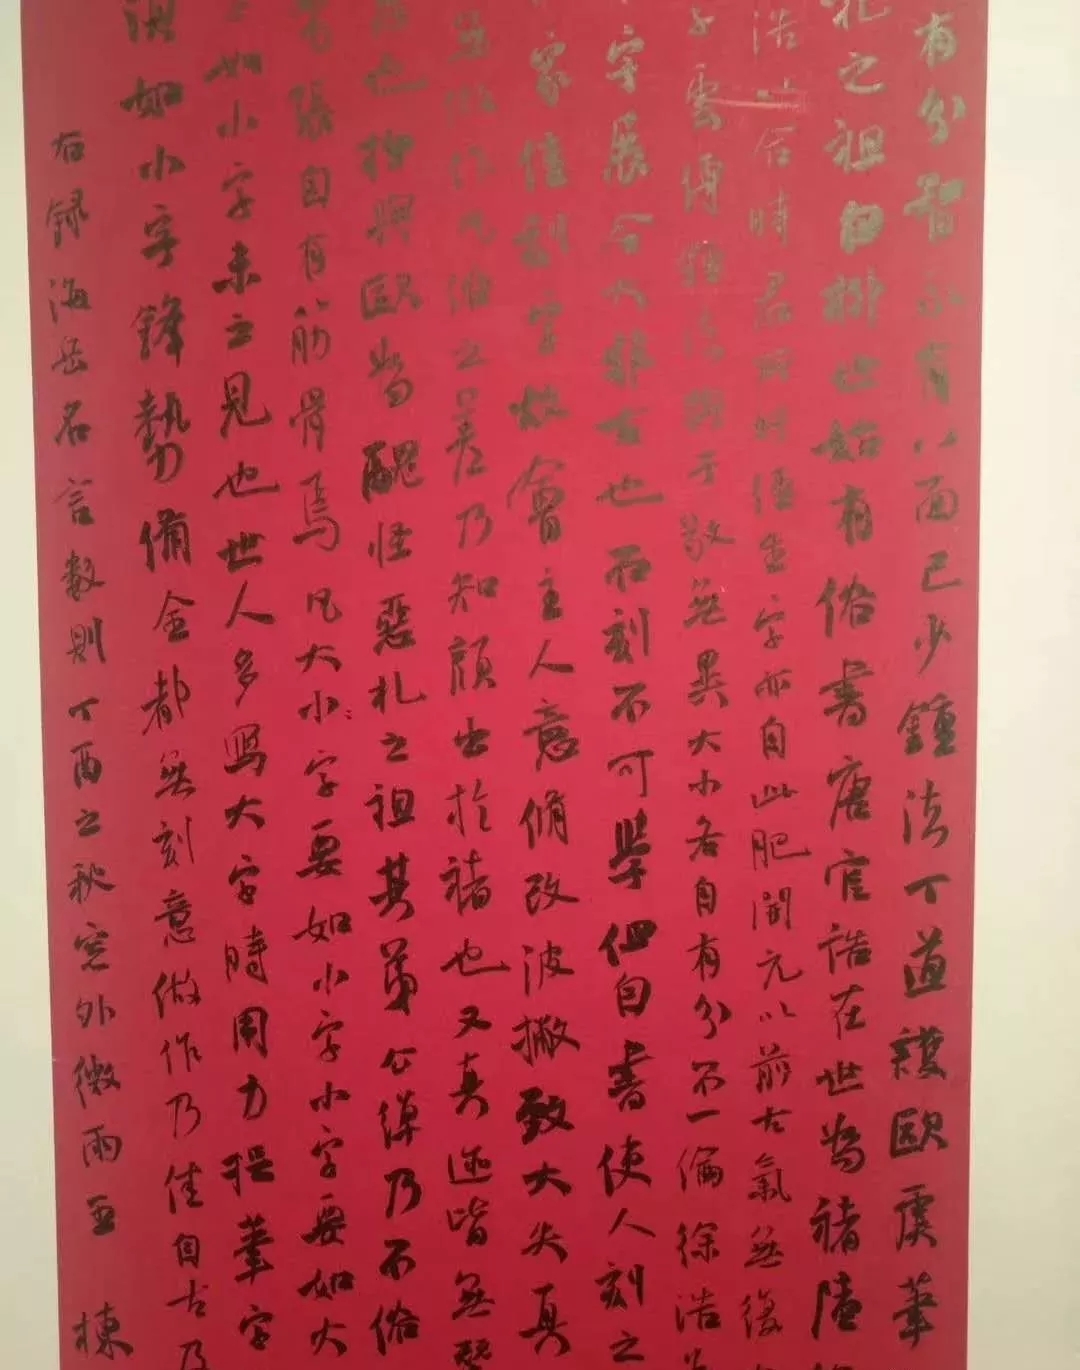 有分智永有八面已少鍾法丁道護歐虞筆
札之祖自柳世始有俗書唐官誥在世為褚陸
浩以合時君所好經生字亦自此肥開元以前古氣無復
子雲傅鍾法與子敬無異大小各自有分不一倫徐浩
字展令大非古也石刻不可學但自書使人刻之
家僮刻字故會主人意修改波撇致大失真
無做作凡俗之差乃知顏出於褚也又真迹皆無
也柳與歐為醜怪惡札之祖其弟公綽乃不俗
張自有筋骨焉凡大小字要如小字小字要如大
如小字未之見也世人多寫大字時用力捉筆字
如小字鋒勢備全都無刻意做作乃佳自古及
右錄海岳名言數則丁酉之秋窓外微雨
棟